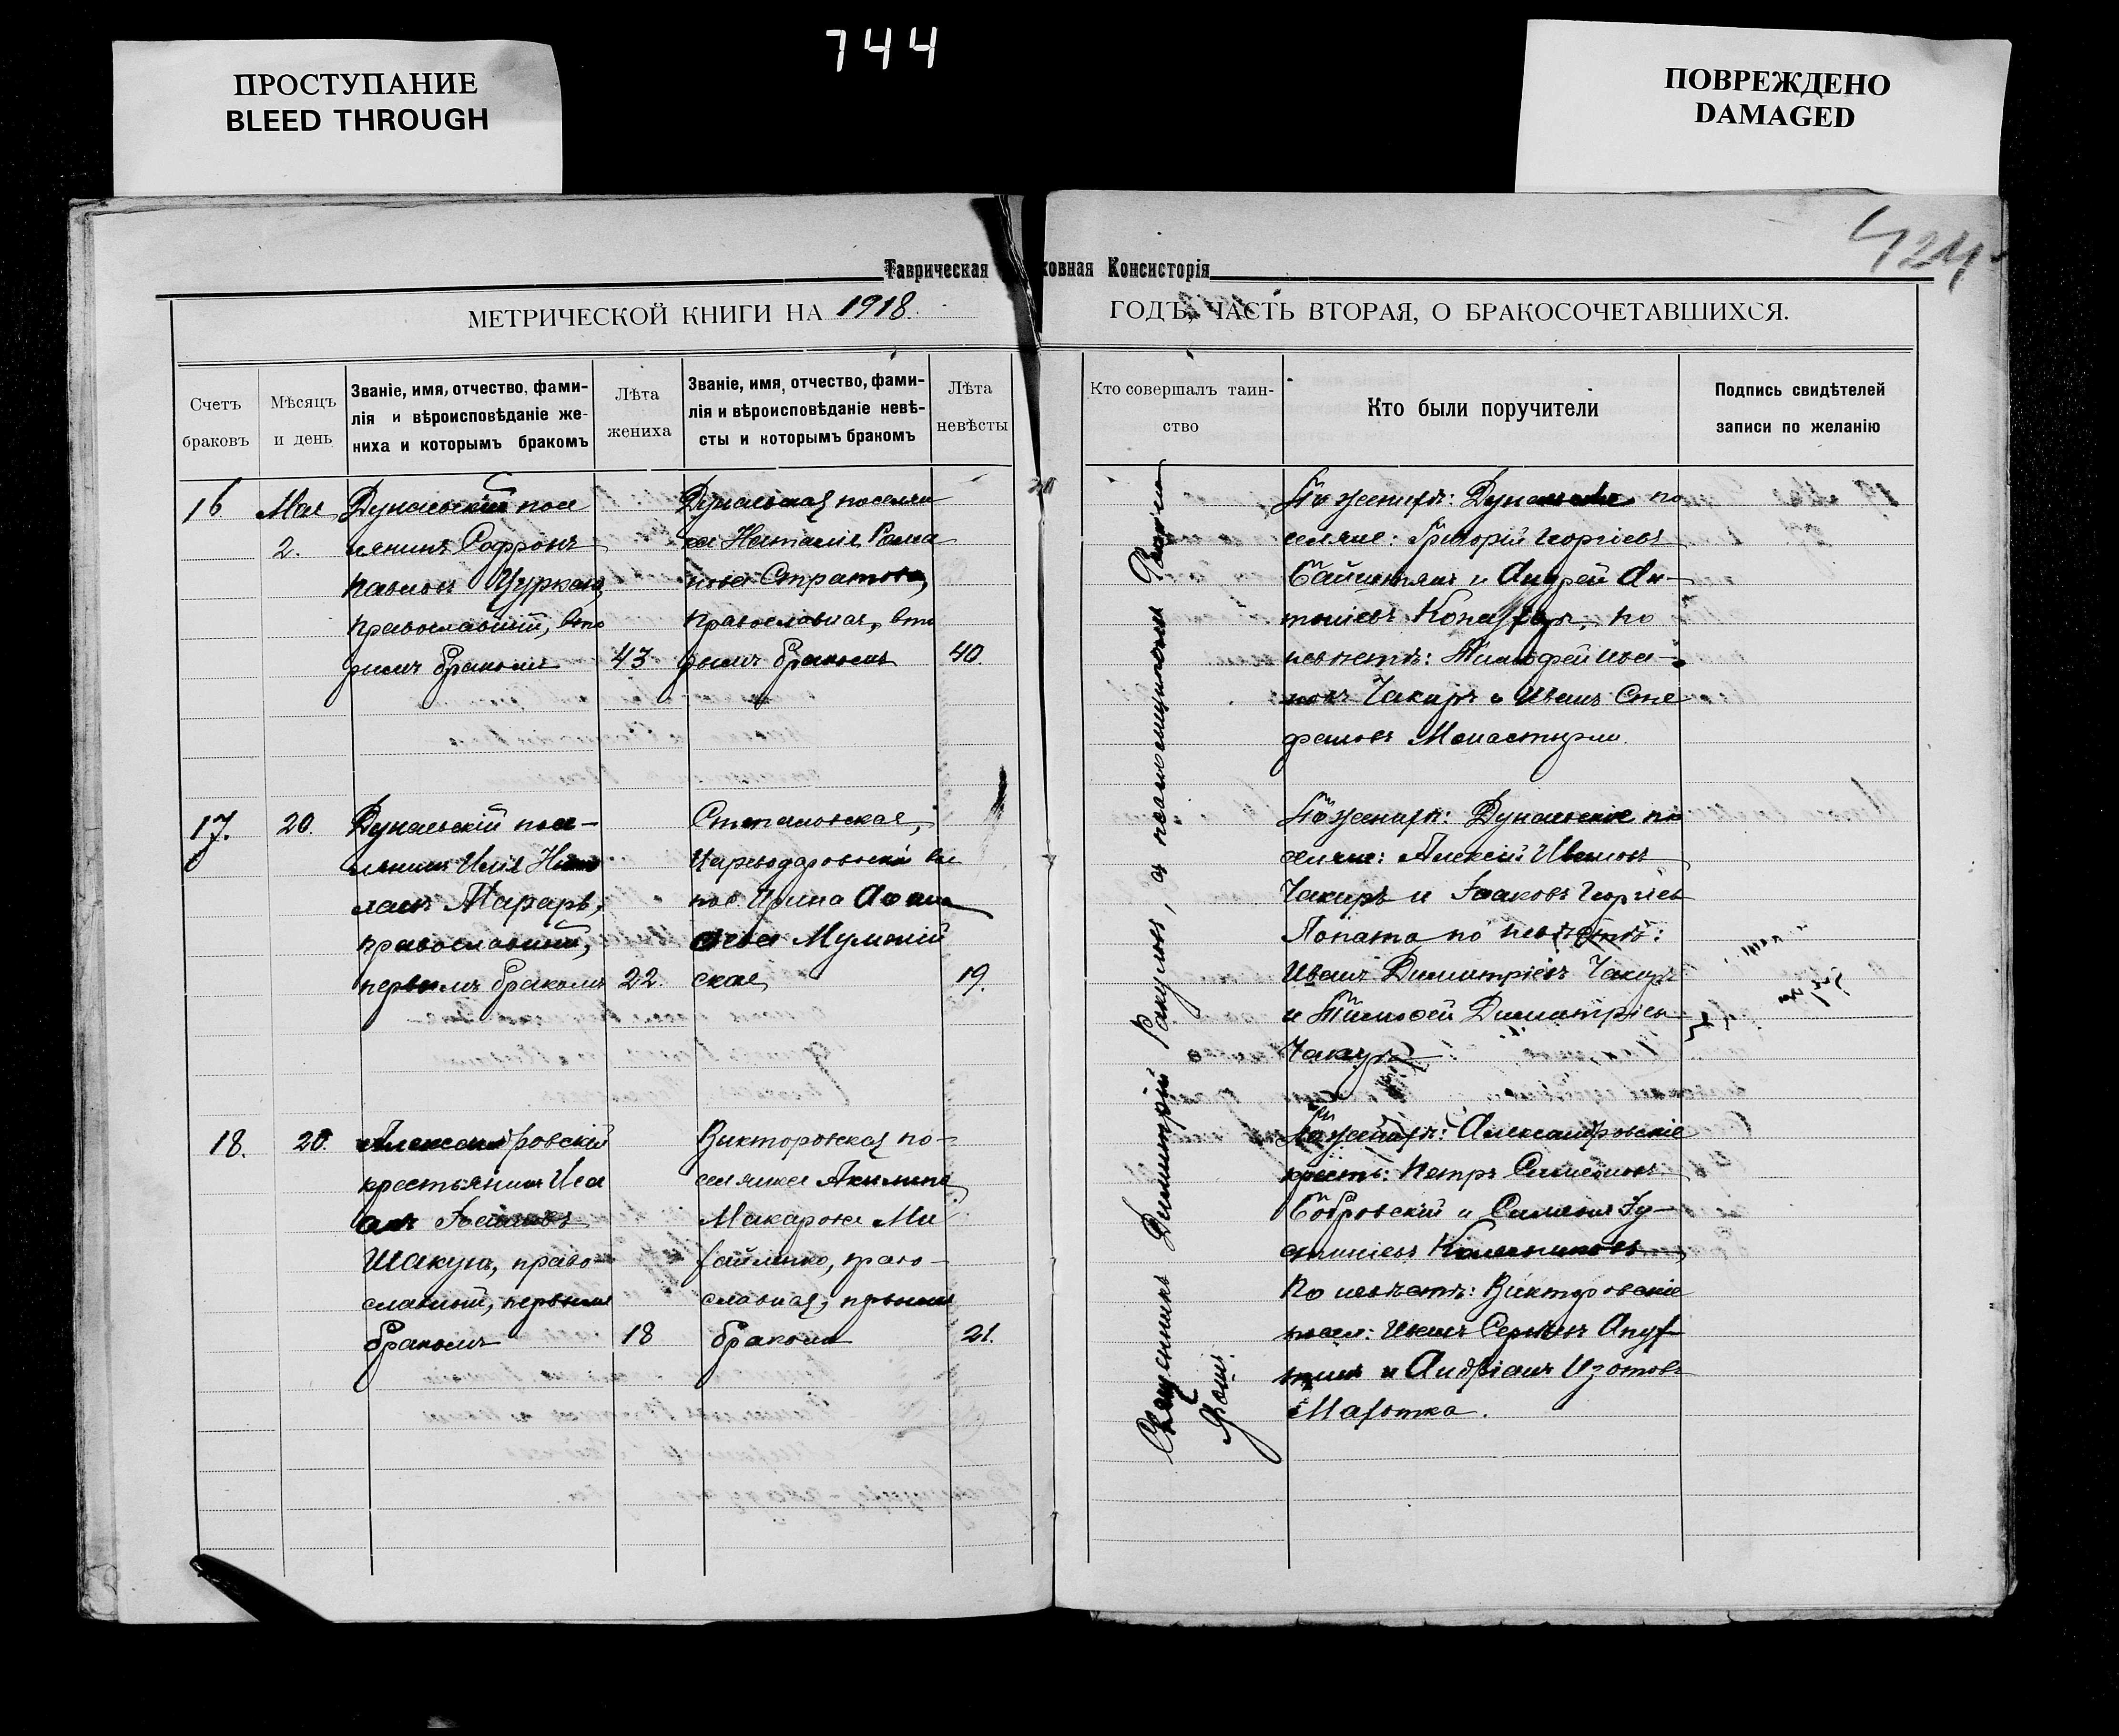 744
ПРОСТУПАНИЕ
BLEED THROUGH
ПОВРЕЖДЕНО
DAMAGED
424
Таврическая ховная Консисторія
МЕТРИЧЕСКОЙ КНИГИ НА 1918. ГОДЪ, ЧАСТЬ ВТОРАЯ, О БРАКОСОЧЕТАВШИХСЯ.
Счетъ
браковъ
Мѣсяцъ
и день
Званіе, имя, отчество, фами-
лія и вѣроисповѣданіе же-
ниха и которымъ бракомъ
Лѣта
жениха
Званіе, имя, отчество, фами-
лія и вѣроисповѣданіе невѣ-
сты и которымъ бракомъ
Лѣта
невѣсты
Кто совершалъ таин-
ство
Кто были поручители
Подпись свидѣтелей
записи по желанію
16
Мая
2.
Дунаевскій посе
лянинъ Софронъ
Павловъ Цуркан
православный, вто
рымъ бракомъ
43
Дунаевская поселян
ка Наталія Рома
нова Стратова,
православная, вто
рымъ бракомъ
40.
По женихѣ: Дунаевскіе по
селяне: Григорій Георгіевъ
и Андрей Ан-
тоніевъ по
невѣстѣ: Тимофей Ива-
новъ Чакиръ и Иванъ Сте
фановъ Монастырли.
17.
20.
Дунаевскій посе-
лянинъ Илія Нико
лаевъ
православный,
первымъ бракомъ
22.
Степановская,
вол
пос. Ирина Афана
сіева
ская
19.
По женихѣ: Дунаевскіе по
селяне: Алексій Ивановъ
Чакиръ и Іаковъ Георгіев
Лопата по невѣстѣ:
Иванъ Димитріевъ Чакиръ
и Тимофей Димитріев
Чакиръ
18.
20.
Александровскій
крестьянинъ Иса
акъ
Шакунъ, право-
славный, первымъ
бракомъ
18
Викторовская по-
селянка Акилина
Макарова Ми
хайленко, право-
славная, первымъ
бракомъ
21.
По женихѣ: Александровскіе
крест: Петръ Симеоновъ
Бобровскій и Симеонъ Іу-
стиніевъ Колесниковъ
По невѣстѣ: Викторовскіе
посел: Иванъ Сергіевъ
и Андріанъ Изотовъ
Священникъ Димитрій Ракуловъ, съ псаломщикомъ